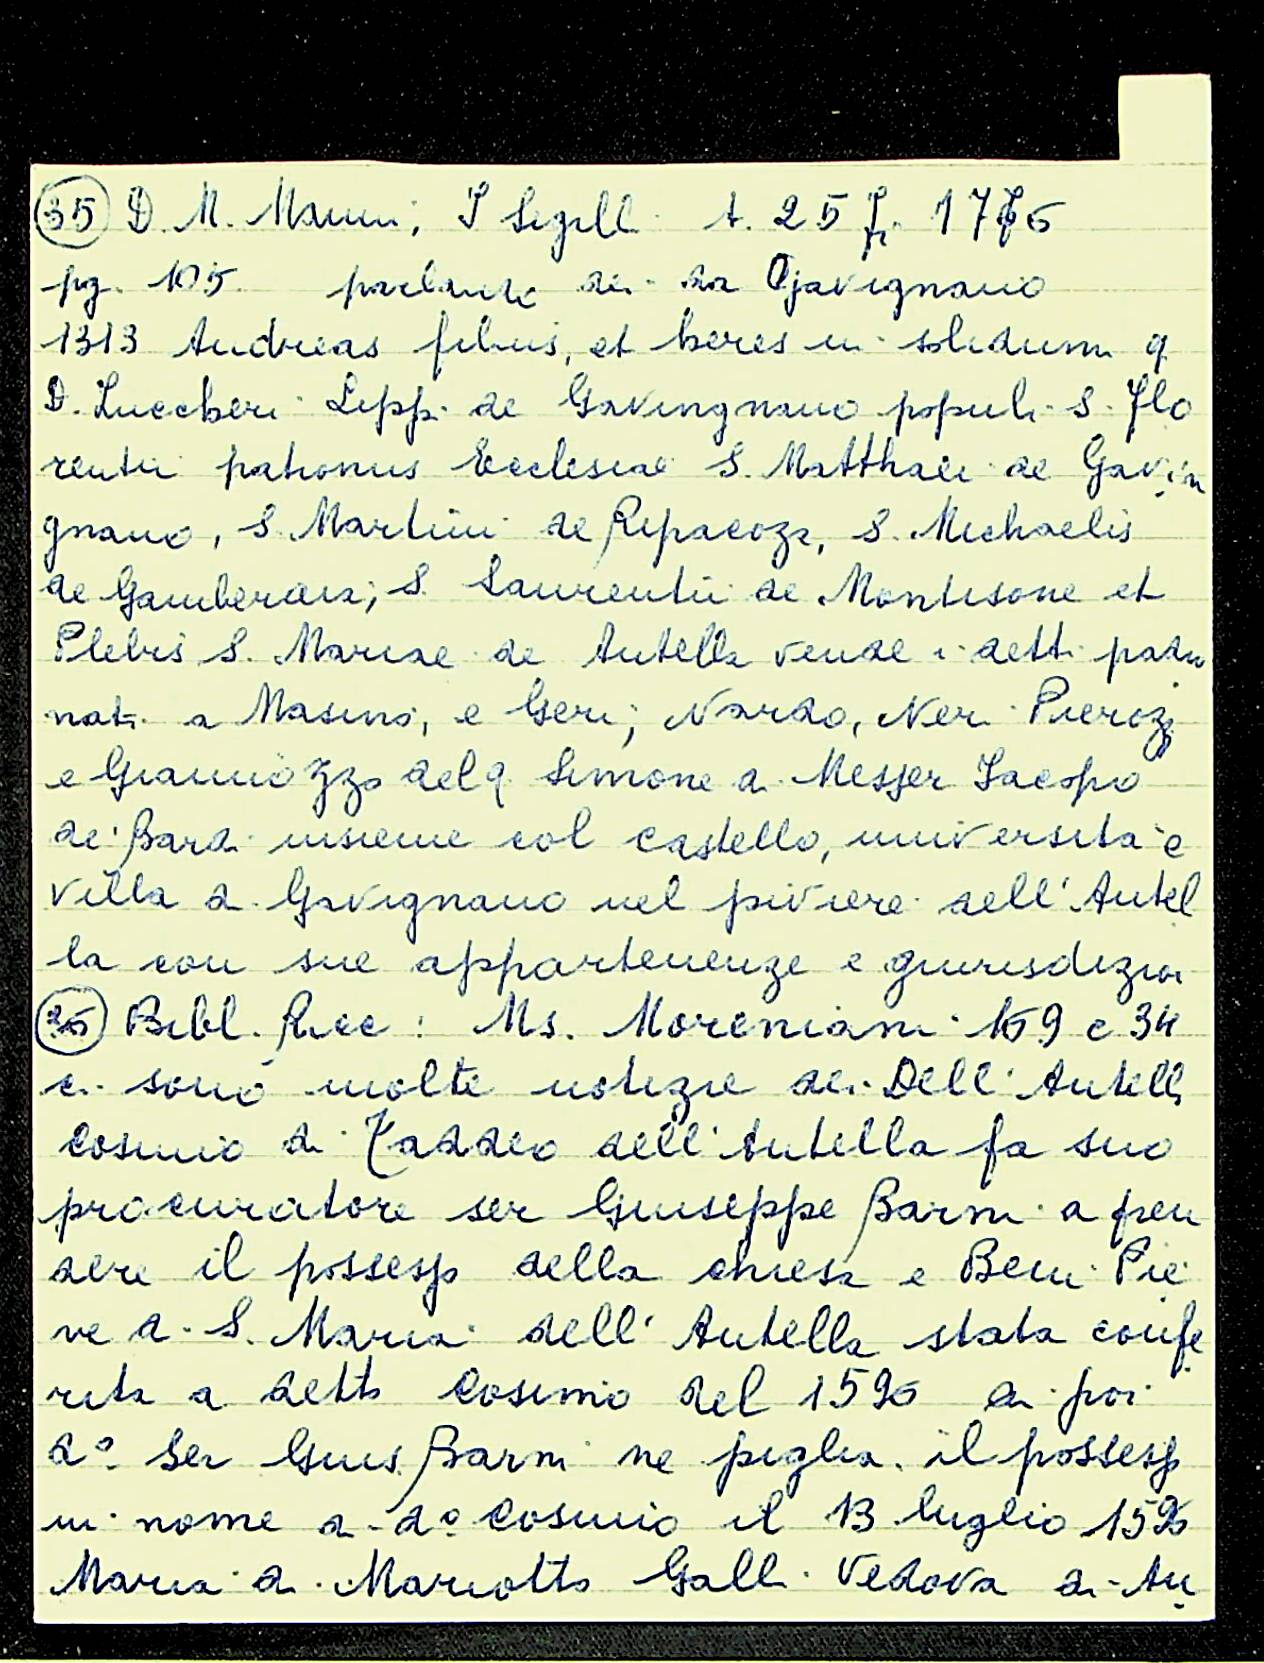 (35) D. M. Manni, I Sigilli t. 25 Fi. 1776
pg. 105 parlante dei da Gavignano
1313 Andreas filius, et heres in solidum q
D. Luccheri Lippi de Gavingnano populi S. Flo
rentii patronus Ecclesiae S. Matthaei de Gavin
gnano, S. Martini de Ripacoza, S. Michaelis
de Gamberaia; S. Laurentii de Montisone et
Plebis S. Mariae de Antella vende i detti patro
nati a Masino, e Geri; Nardo, Neri Pierozzi
e Giannozzo del q Simone di Messer Iacopo
de' Bardi insieme col castello, università e
villa di Gavignano nel piviere dell' Antel
la con sue appartenenze e giurisdizioi
(36) Bibl. Ricc: Ms. Moreniani 169 c 34
ci sono molte notizie dei Dell' Antella
Cosimo di Taddeo dell' Antella fa suo
procuratore ser Giuseppe Barni a pren
dere il possesso della chiesa e Beni Pie
ve di S. Maria dell' Antella stata confe
rita a detto Cosimo del 1596 e poi
do Ser Gius Barni ne piglia il possesso
in nome di do Cosimo il 13 luglio 1596
Maria di Mariotto Galli Vedova di An